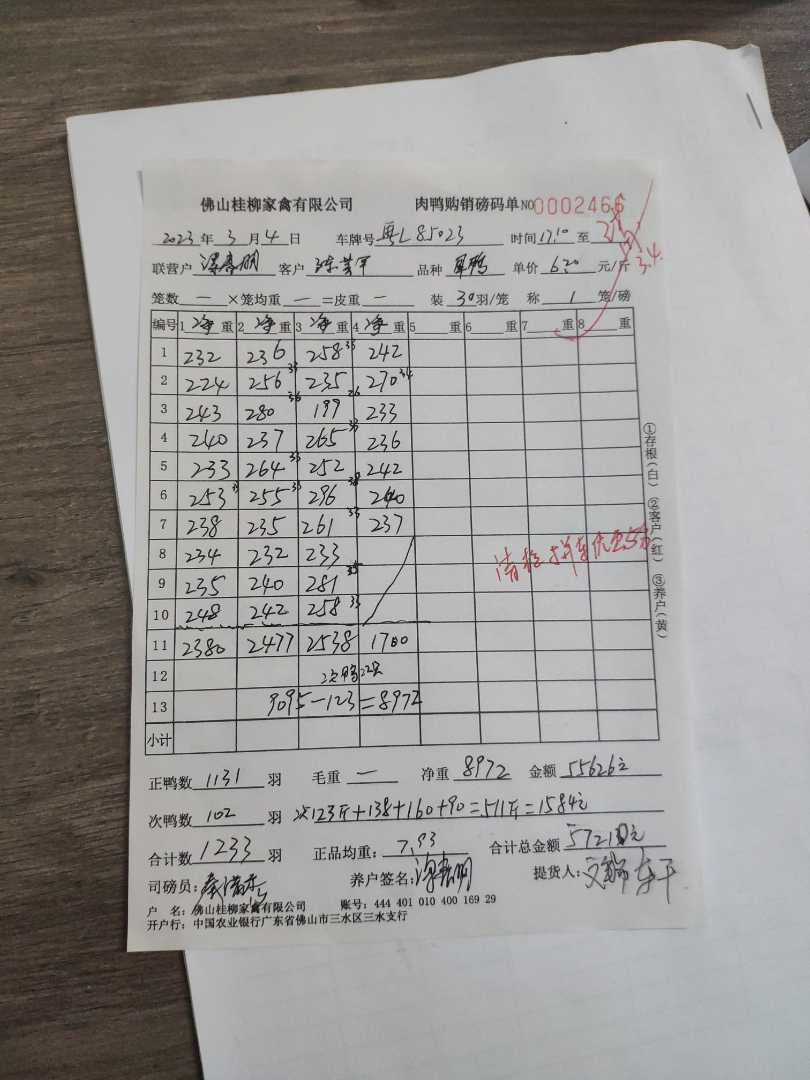 佛山桂柳家禽有限公司 肉鸭购销磅码单 NO 0002466
2023年3月4日 车牌号 粤L85023 时间 17:10 至
联营户 客户 品种 单价 6.20 元/斤
笼数 一 ×笼均重 一 =皮重 一 装 30 羽/笼 称 1 笼/磅
编号 1 净 重 2 净 重 3 净 重 4 净 重 5 重 6 重 7 重 8 重
3.4.
1 232 236 258 35 242
2 224 256 33 235 270 34
3 243 280 36 199 26 233
4 240 237 265 33 236
5 233 264 33 252 242
6 253 255 33 296 38 240
7 238 235 261 33 237
8 234 232 233
9 235 240 281 35
10 248 242 258 33
11 2380 2477 2538 1700
12 次鸭22只
13 9095-123=8972
小计
①存根(白) ②客户(红) ③养户(黄)
正鸭数 1131 羽 毛重 一 净重 8972 金额 55626元
次鸭数 102 羽 次123斤+138+160+90=511斤=1584元
合计数 1233 羽 正品均重: 7.93 合计总金额 57210元
司磅员: 养户签名: 提货人:
户 名: 佛山桂柳家禽有限公司 账号: 444 401 010 400 169 29
开户行: 中国农业银行广东省佛山市三水区三水支行